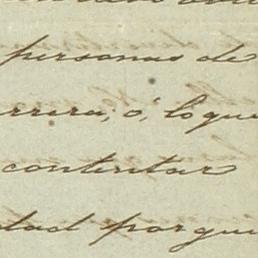 personas de
rrera, ó, lo que
contentar
dad porque